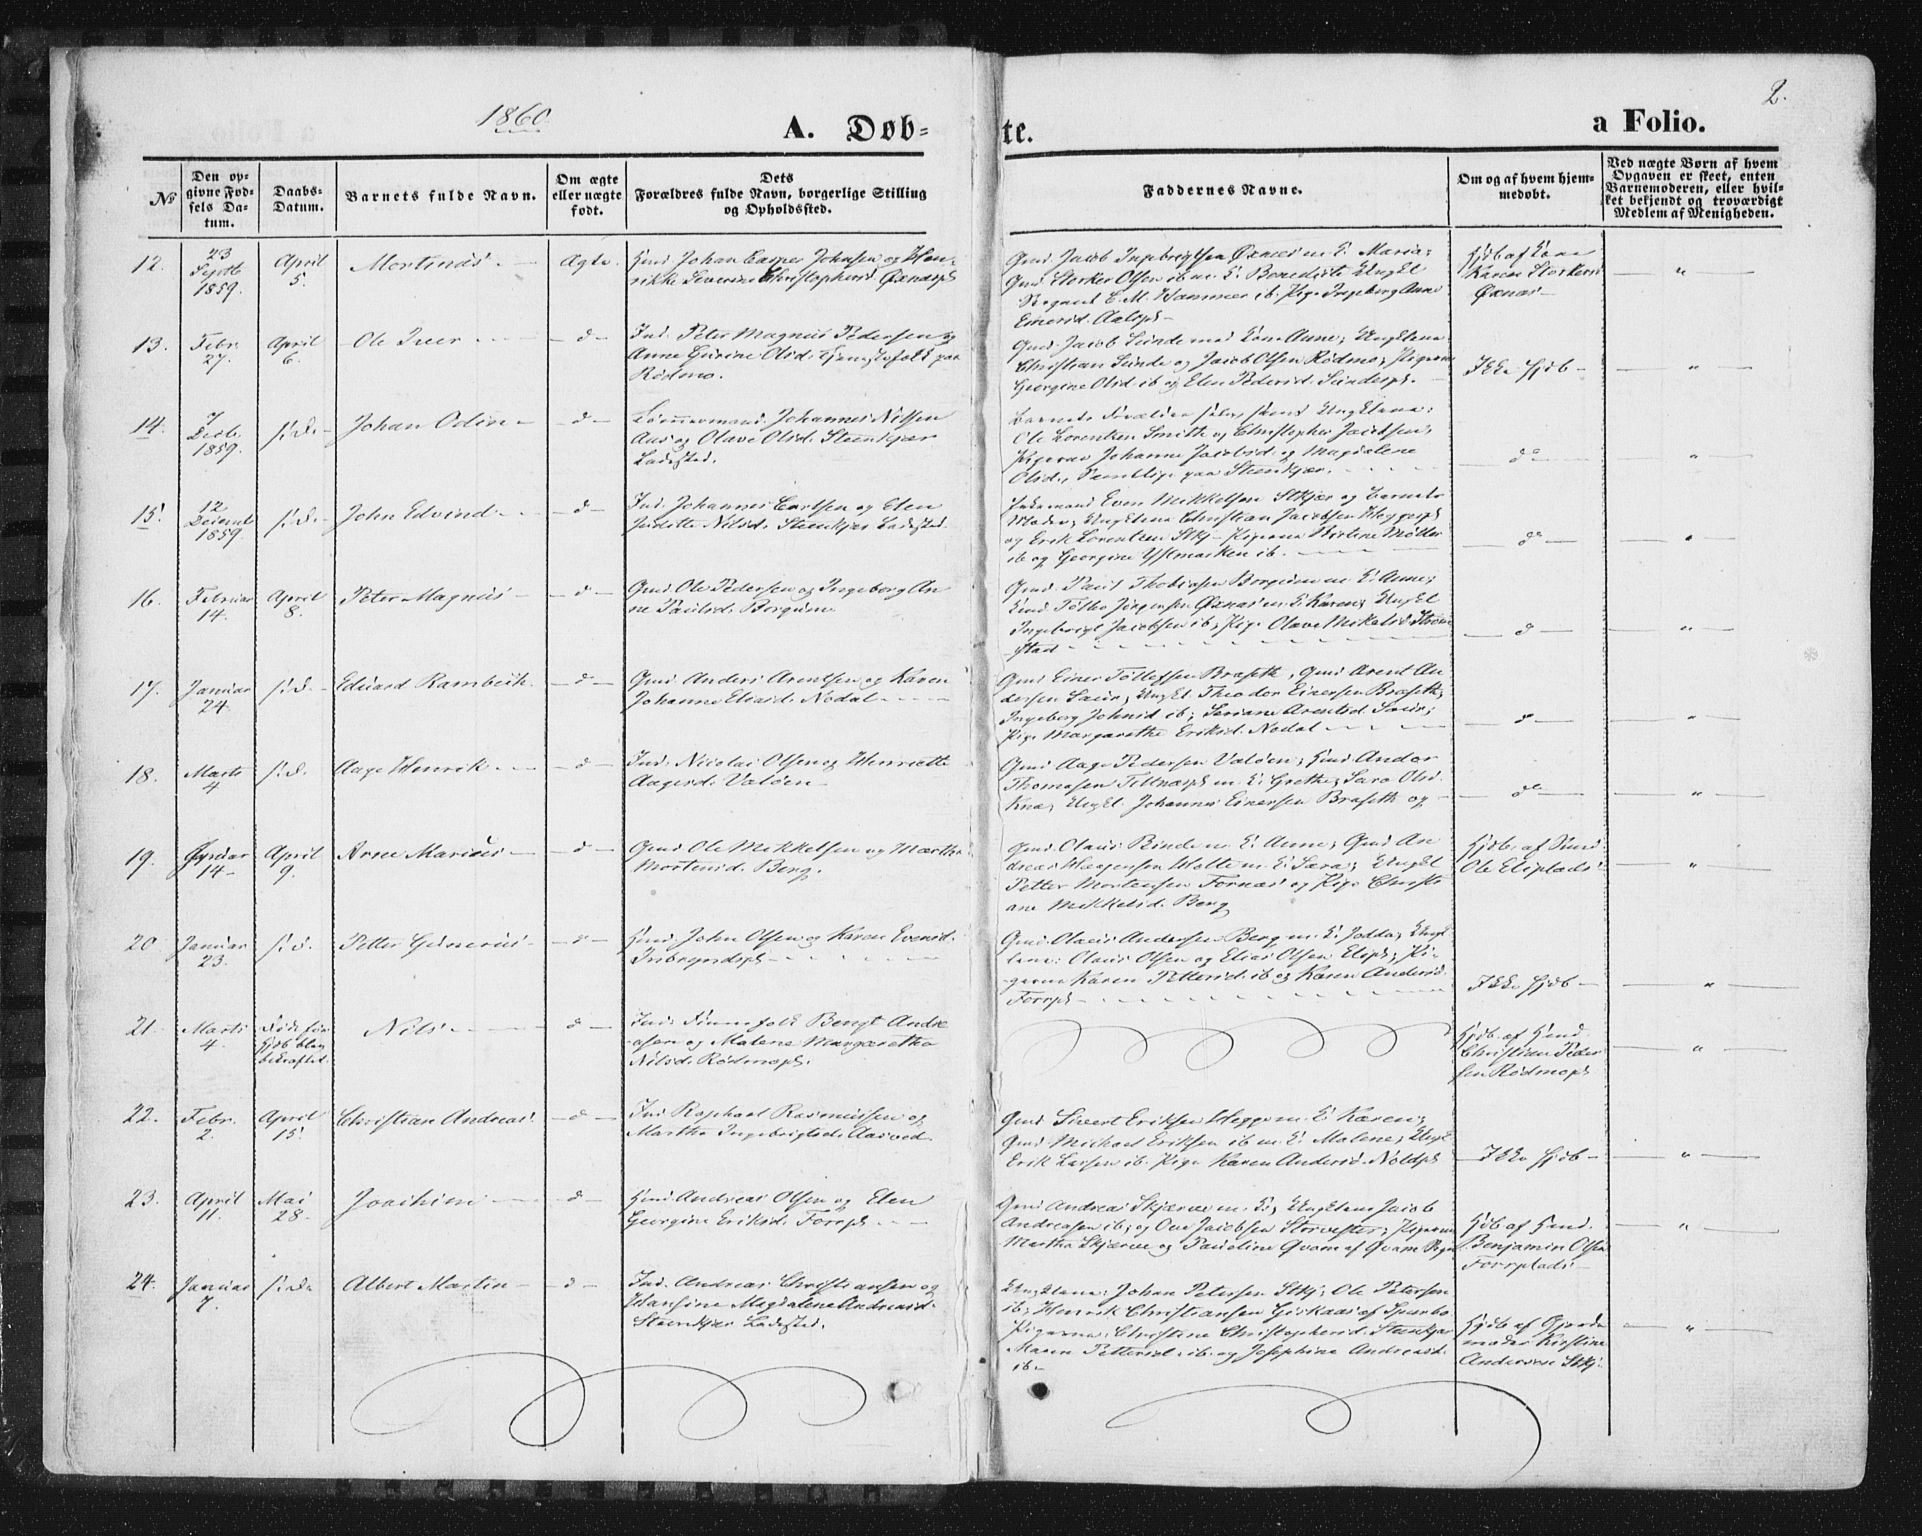 1860
2.
A. Døb=
te.
a Folio.
№
Den op-
givne Fød-
sels Da-
tum.
Daabs-
Datum.
Barnets fulde Navn.
Om ægte
eller uægte
født.
Dets
Forældres fulde Navn, borgerlige Stilling
og Opholdssted.
Faddernes Navne.
Om og af hvem hjem-
medøbt.
Ved uægte Børn af hvem
Opgaven er skeet, enten
Barnemoderen, eller hvil-
ket bekjendt og troværdigt
Medlem af Menigheden.
12.
23
Septb
1859.
April
5.
Mortinus
Ægte
Johan Casper Johnsen og Hen-
rikke Severine Christophersd. Øxnæspl
Gmd. Jacob Ingebrigtsen Øxnes m. K. Maria;
Gmd Storker Olsen ib m. K. Benedicte Ungkl
E. M. Hammer ib. Pige Ingeberg Anne
Einersd. Aalspl
Hjdb af Kone
Karen Storkersd
Øxnæs
13.
Febr.
27.
April
6.
Ole Iver
d
Ind. Peter Magnus Pedersen og
Anne Gurine Olsd. Tjenestefolk paa
Rødmo.
Gmd. Jacob Sunde med Kone Anne; Ungklene
Christian Sunde og Jacob Olsen Rødmo; Pigerne
Georgine Olsd ib og Elen Pedersd. Sundespl.
Ikke hjdb
14.
7
Decb.
1859.
s. D.
Johan Odin
d
Tømmermand Johannes Nilsen
Aas og Olave Olsd. Steenkjær
Ladested.
Barnets Forældre selv, samt Ungklene:
Ole Lorentzen Smith og Christopher Jacobsen;
Pigerne Johanne Jacobsd. og Magdalene
Olsd., Samtlige paa Steenkjær.
do
15.
12
Decembr
1859.
s. D.
John Edvind
d
Ind. Johannes Carlsen og Elen
Judithe Nilsd. Steenkjær Ladested
Even Mikkelsen Stkjær og Barnets
Moder; Ungklene Christian Jacobsen Heggespl
og Erik Lorentzen Stkj. Pigerne Møller
ib og Georgine ib.
do
16.
Februar
14.
April
8.
Peter Magnus
d
Gmd. Ole Pedersen og Ingeborg An
ne Paulsd. Borgum
Gmd. Paul Thobiasen Borgum m. K. Anne;
Jørgensen Øxnæs m. K. Karen; Ungkl
Ingebrigt Jacobsen ib; Pige Olave Mikalsd.
stad
d
17.
Januar
24.
s. D.
Eduard Rambech
d
Gmd. Anders Arentsen og Karen
Johanne Eliasd. Nødal
Gmd Einer Tollefsen Braseth, Gmd Arent An
dersen Saur; Ungkl Theodor Einersen Braseth;
Ingeborg Johnsd ib; Seriane Arentsd. Saur;
Pige Margarethe Eriksd. Nødal
d
18.
Marts
4
s. D.
Aage Henrik
d
Ind. Nicolai Olsen og Henriette
Aagesd. Valøen
Gmd Aage Pedersen Valøen; Andor
Thomasen m. K. Grethe; Sara Olsd.
Ungkl. Johannes Einersen Braseth og
do
19.
14
April
9.
Arne Marius
d
Gmd. Ole Mikkelsen og Martha
Mortensd. Berg.
Gmd. Olaus Binde m. K. Anne; Gmd An
dreas m. K. Sara; Ungkl
Petter Mortensen Fornæs og Pige Christi
ane Mikkelsd. Berg
Hjdb. af Hmd
Ole Elsplads
20
Januar
23.
s. D.
Petter Gunerius
d
Hmd. John Olsen og Karen Evensd.
Gmd. Olaus Andersen Berg m. K. Jodda; Ungk
lene: Olaus Olsen og Elias Olsen; Pi-
gerne Karen Pettersd. ib og Karen Andersd.
Forrpl
Ikke hjdb
21.
Marts
4
Død før
Hjdb blev
bekræftet.
Nils
d
Ind. Finnefolk Bengt Andre
asen og Malene Margaretha
Nilsd. Rødmopl.
Hjdb. af Hmd.
Christian Peder
sen Rødmopl
22.
Febr.
2.
April
15.
Christian Andreas
d
Ind Raphael Rasmussen og
Martha Ingebrigtsd. Aasved
Gmd Sivert Eriksen Hegge m. K. Karen;
Gmd Michael Eriksen ib m. K. Malene; Ungkl
Erik Larsen ib. Pige Karen Andersd.
Ikke hjdb
23.
April
11.
Mai
28.
Joachim
d
Hmd. Andreas Olsen og Elen
Georgine Eriksd. Forrpl
Gmd Andreas Skjærve m. K; Ungklene Jacob
Andreasen ib; og Ole Jacobsen; Pigerne
Martha Skjærve og Pauline Qvam af Qvam
Hjdb af Hmd.
Benjamin Olsen
Forrplads
24.
Januar
7.
s. D.
Albert Martin
d
Ind. Andreas Christiansen og
Hansine Magdalene Andreasd.
Steenkjær Ladested.
Ungklene: Johan Petersen Stkj; Ole Petersen
ib; Henrik Christiansen af Sparbo
Pigerne: Christine Christophersd. Steenkjær
Maren Pettersd. ib. og Josephine Andreasd.
ib
Hjdb af Gjorde
moder Kirstine
Andersen Stkj.